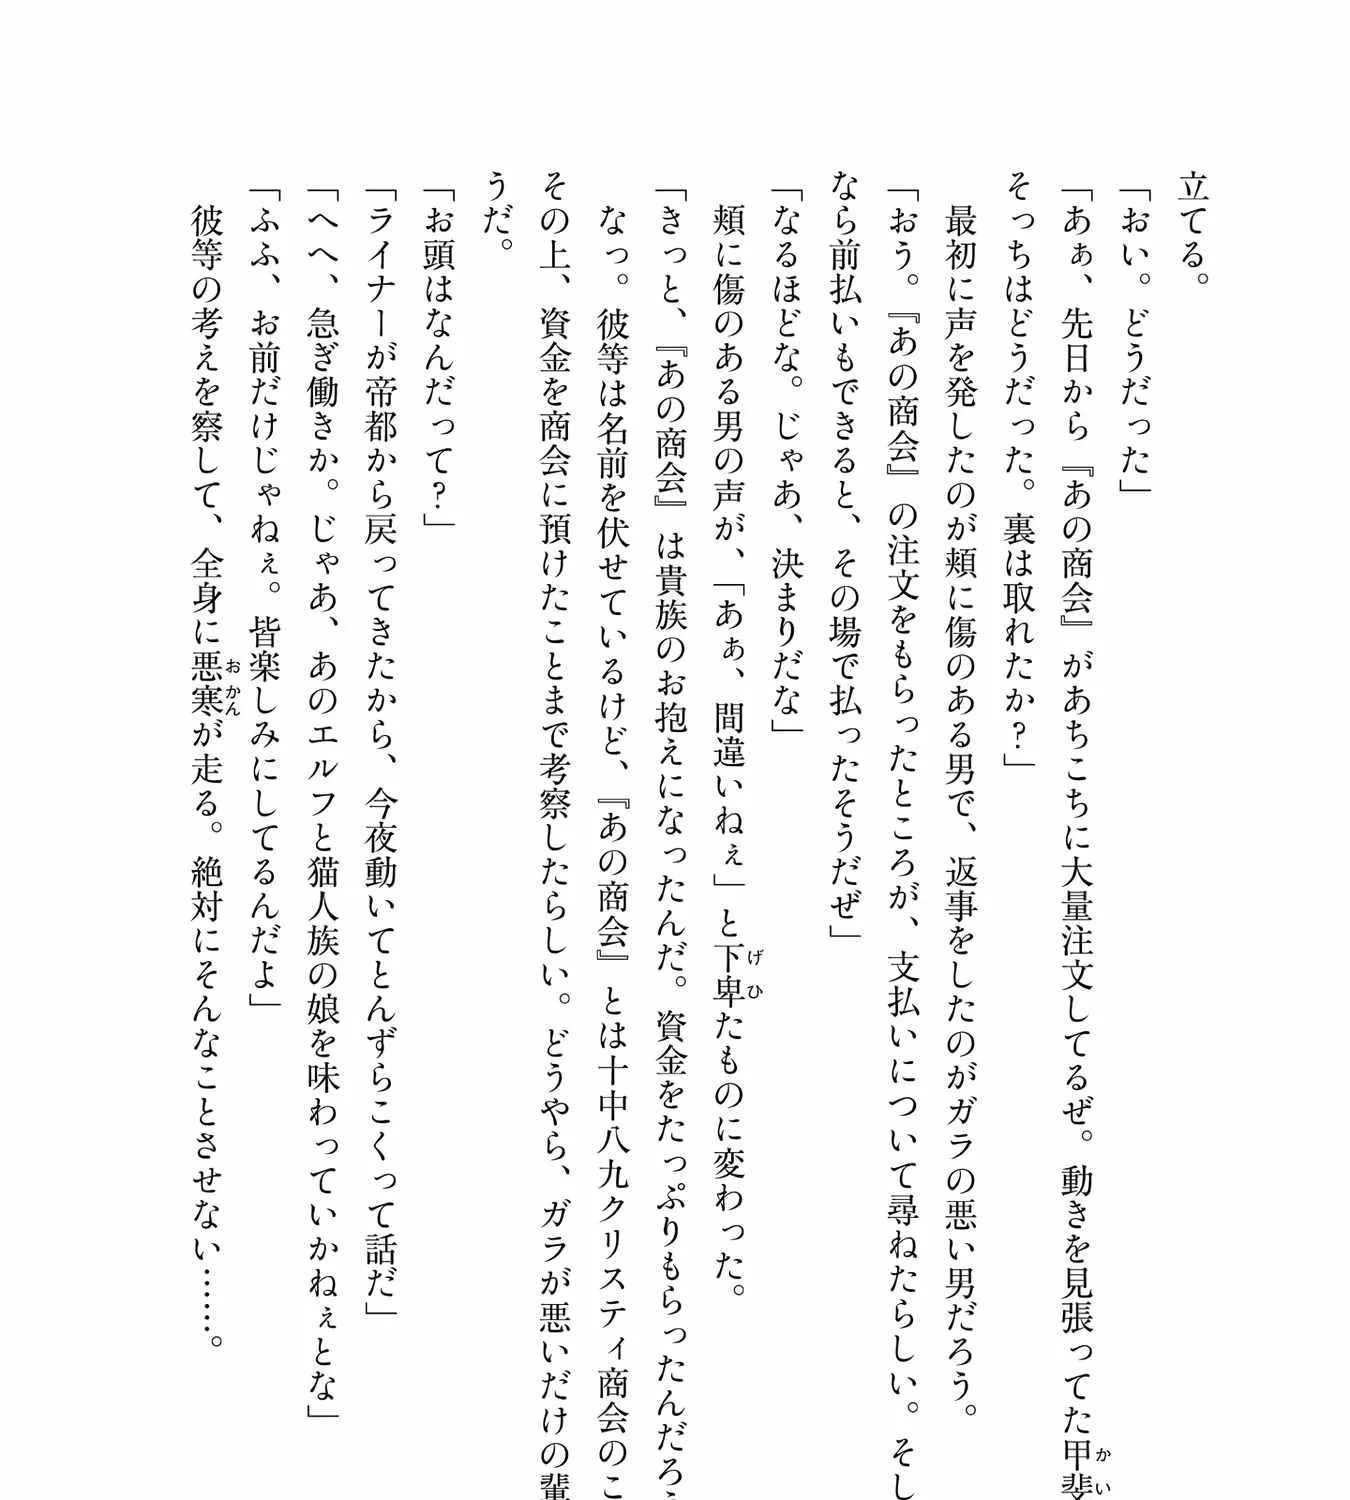 立てる。
「おい。どうだった」
「あぁ、先日から『あの商会』があちこちに大量注文してるぜ。動きを見張ってた甲斐
そっちはどうだった。裏は取れたか？」
　最初に声を発したのが頬に傷のある男で、返事をしたのがガラの悪い男だろう。
「おう。『あの商会』の注文をもらったところが、支払いについて尋ねたらしい。そし
なら前払いもできると、その場で払ったそうだぜ」
「なるほどな。じゃあ、決まりだな」
　頬に傷のある男の声が、「あぁ、間違いねぇ」と下卑たものに変わった。
「きっと、『あの商会』は貴族のお抱えになったんだ。資金をたっぷりもらったんだろう
　なっ。彼等は名前を伏せているけど、『あの商会』とは十中八九クリスティ商会のこ
その上、資金を商会に預けたことまで考察したらしい。どうやら、ガラが悪いだけの輩
うだ。
「お頭はなんだって？」
「ライナーが帝都から戻ってきたから、今夜動いてとんずらこくって話だ」
「へへ、急ぎ働きか。じゃあ、あのエルフと猫人族の娘を味わっていかねぇとな」
「ふふ、お前だけじゃねぇ。皆楽しみにしてるんだよ」
　彼等の考えを察して、全身に悪寒が走る。絶対にそんなことさせない……。